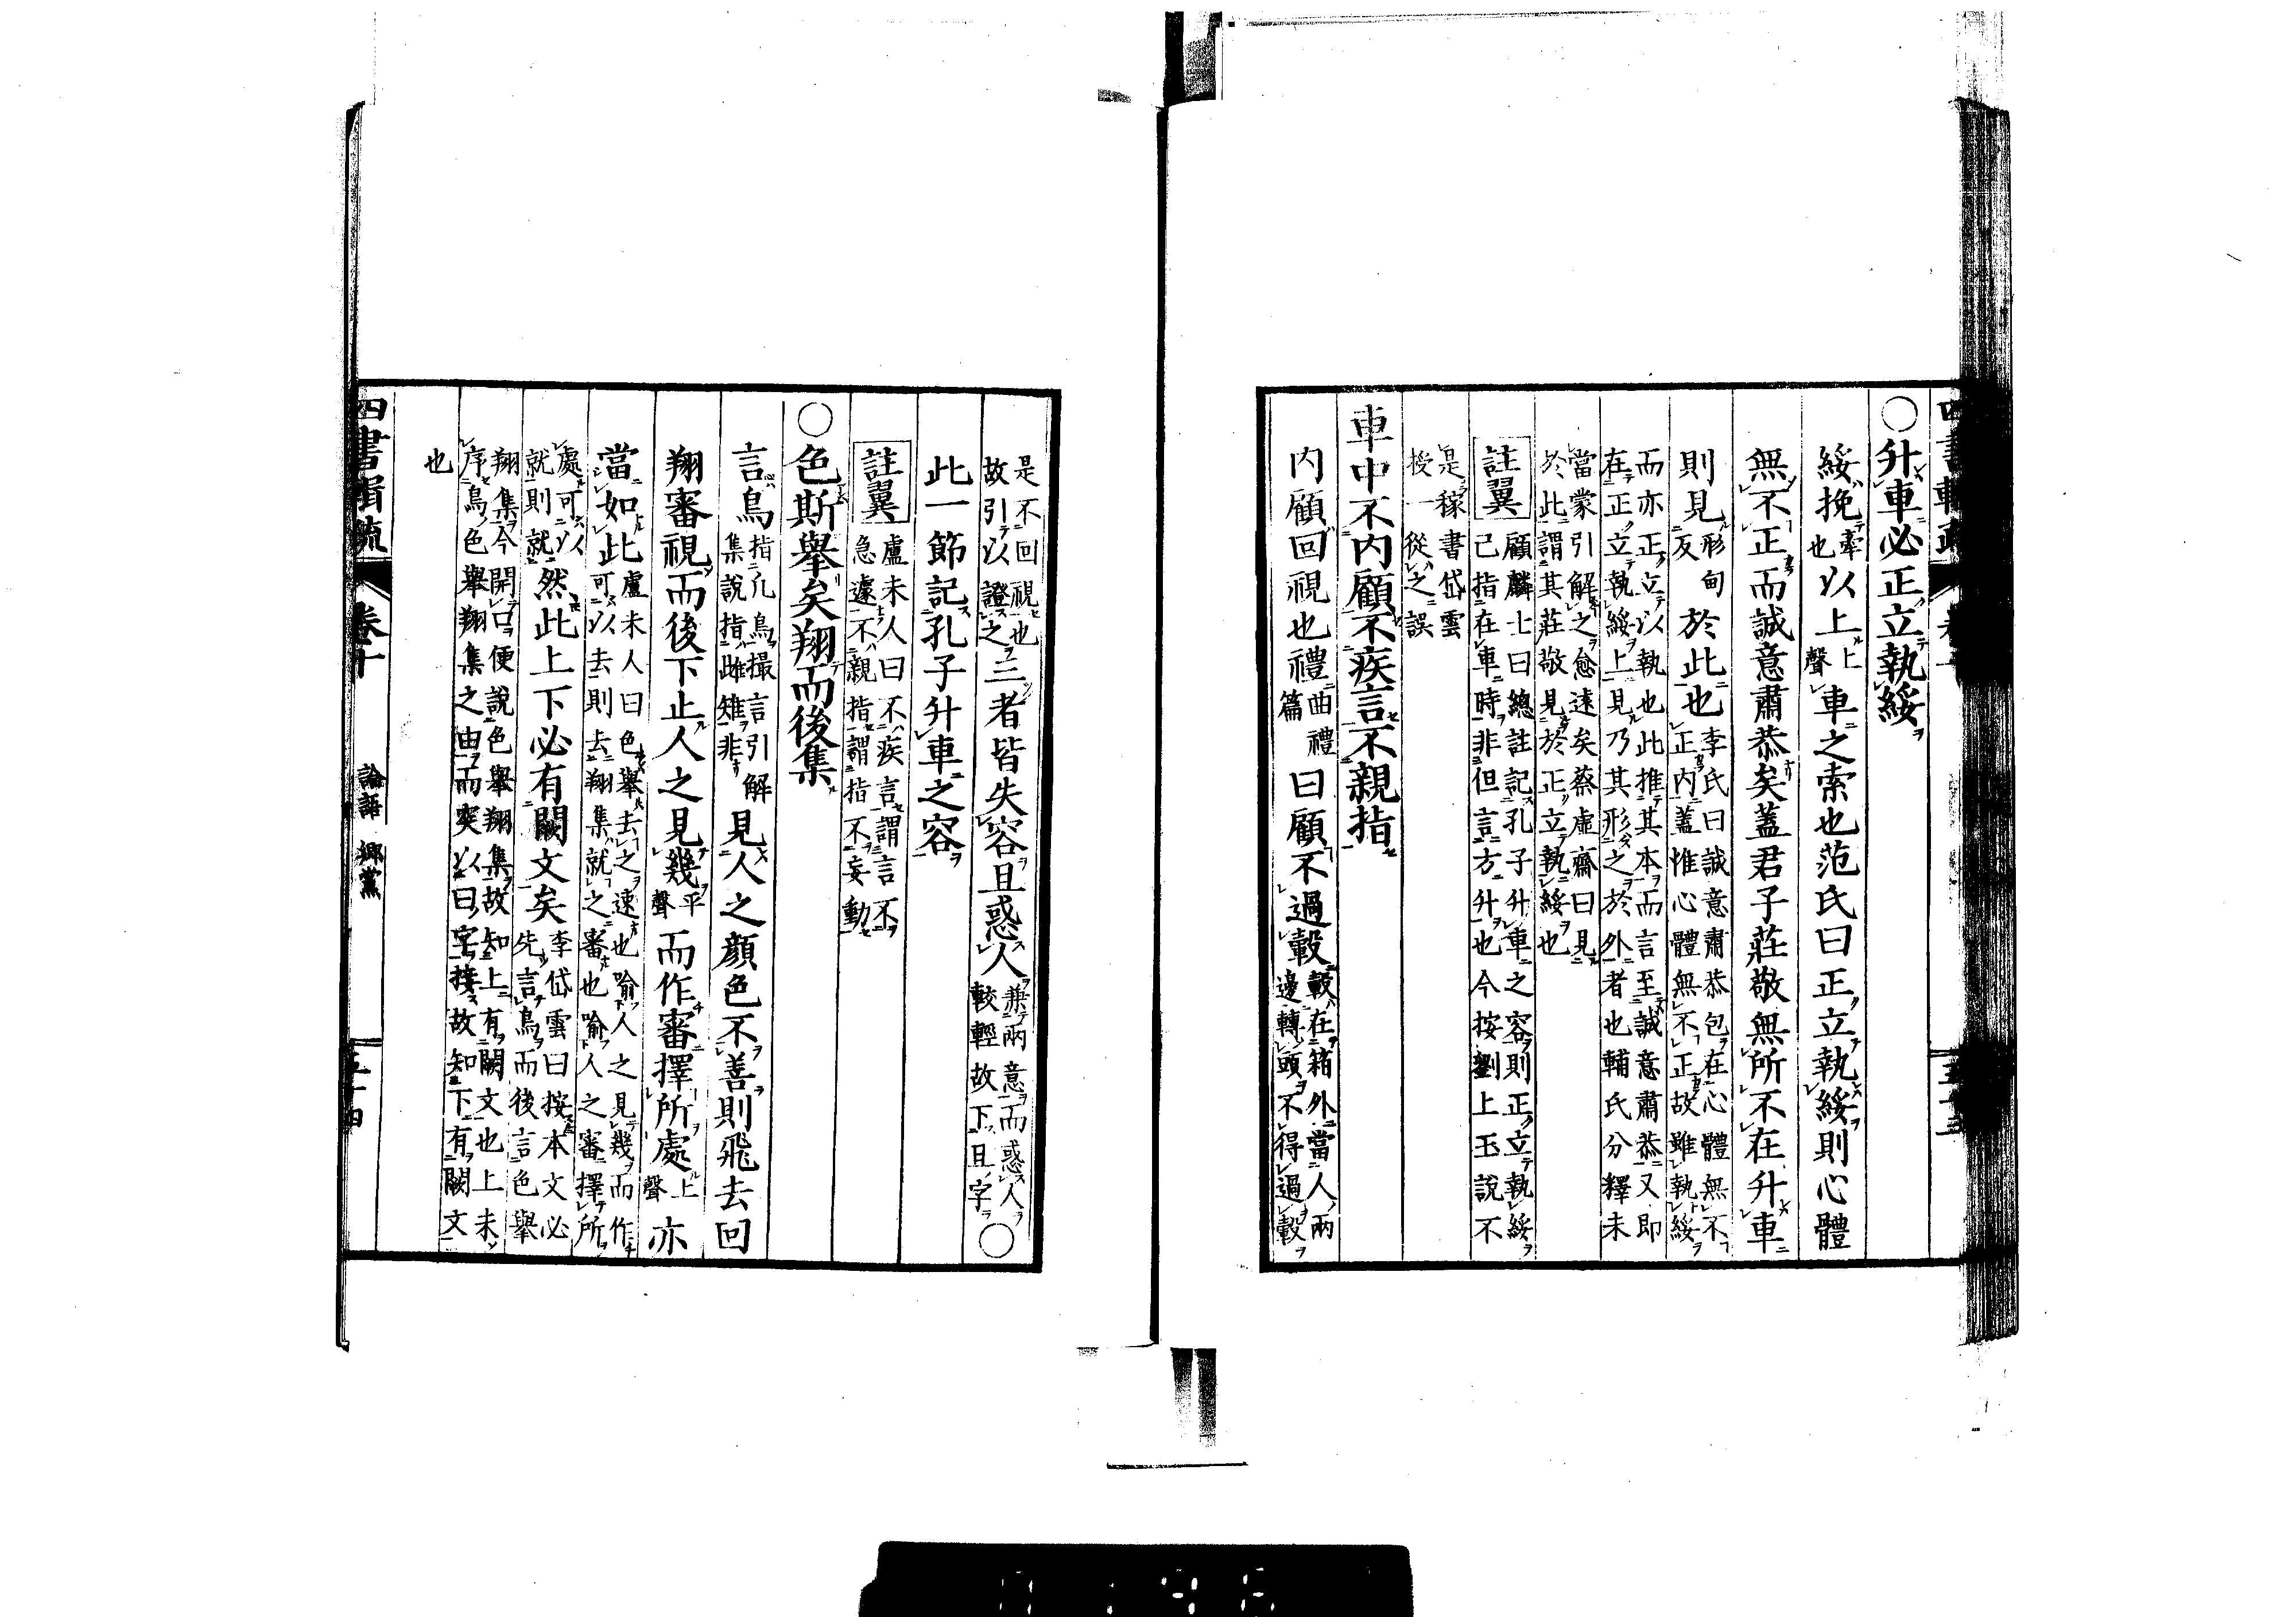 〇升車必正立執綏
綏挽牽也以上上聲車之索也范氏曰正立執綏則心體
無不正而誠意肅恭矣蓋君子莊敬無所不在升車
則見形甸反於此也李氏曰誠意肅恭包在心體無不正內蓋惟心體無不正故雖執綏
而亦正立以執也此推其本而言至誠意肅恭又即在正立執綏上見乃其形之於外者也輔氏分釋未
當蒙引解之愈遠矣蔡虛齋曰見於此謂其莊敬見於正立執綏也
註翼顧麟士曰總註記孔子升車之容則正立執綏己指在車時非但言方升也今按劉上玉說不
是稼書岱雲授一從之誤
車中不內顧不疾言不親指
內顧回視也禮曲禮篇曰顧不過轂轂在箱外當人兩邊轉頭不得過轂
是不回視也故引以證之三者皆失容且惑人兼兩意而惑人較輕故下且字〇
此一節記孔子升車之容
註翼盧未人曰不疾言謂言不急遽不親指謂指不妄動
〇色斯舉矣翔而後集
言鳥指凡鳥撮言引解集說指雌雉非見人之顏色不善則飛去回
翔審視而後下止人之見幾平聲而作審擇所處上聲亦
當如此盧未人曰色舉去之速也喻人之見幾而作可以去則去翔集就之審也喻人之審擇所
處可以就則就然此上下必有闕文矣李岱雲曰按本文必先言鳥而後言色舉
翔集今開口便說色舉翔集故知上有闕文也上未序鳥色舉翔集之由而突以曰字接故知下有闕文
也
四書輯疏
卷十
論語 鄉黨
五十四